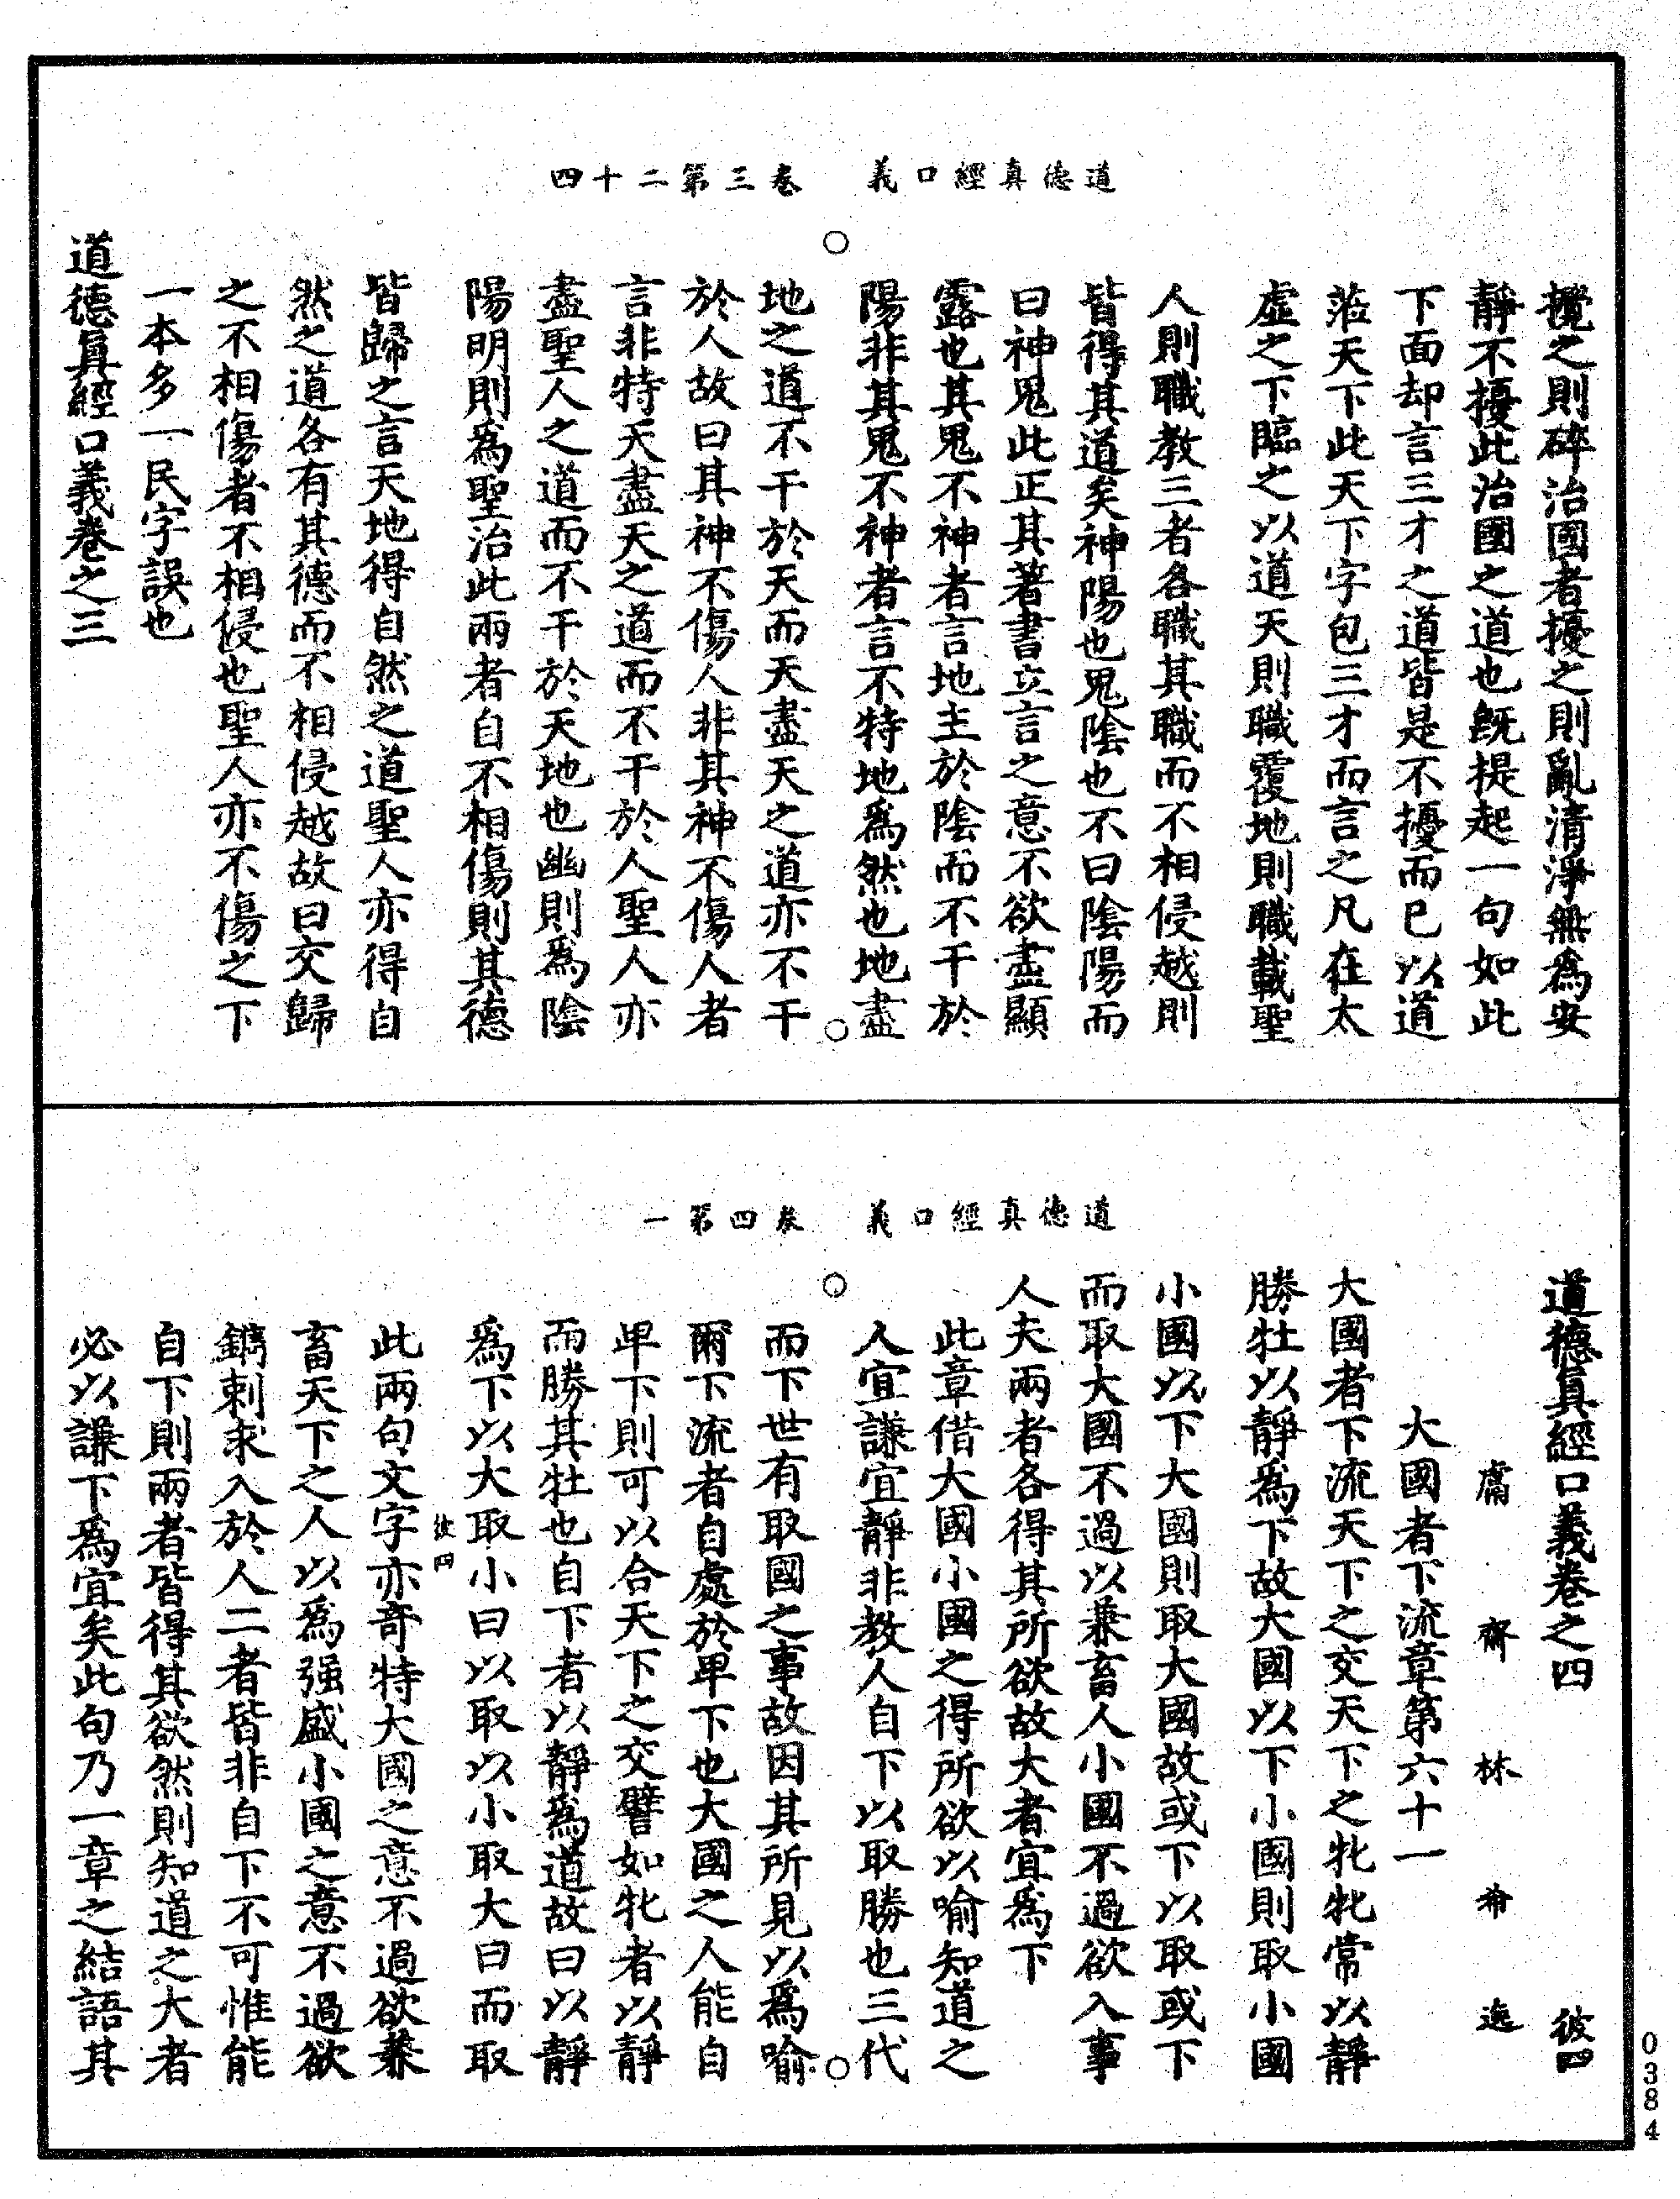 道德真經口義　卷三第二十四
攪之則碎治國者擾之則亂清淨無為安
靜不擾此治國之道也既提起一句如此
下面却言三才之道皆是不擾而已以道
莅天下此天下字包三才而言之凡在太
虛之下臨之以道天則職覆地則職載聖
人則職教三者各職其職而不相侵越則
皆得其道矣神陽也鬼陰也不曰陰陽而
曰神鬼此正其著書立言之意不欲盡顯
露也其鬼不神者言地主於陰而不干於
陽非其鬼不神者言不特地為然也地盡
地之道不干於天而天盡天之道亦不干
於人故曰其神不傷人非其神不傷人者
言非特天盡天之道而不干於人聖人亦
盡聖人之道而不干於天地也幽則為陰
陽明則為聖治此兩者自不相傷則其德
皆歸之言天地得自然之道聖人亦得自
然之道各有其德而不相侵越故曰交歸
之不相傷者不相侵也聖人亦不傷之下
一本多一民字誤也
道德真經口義卷之三
道德真經口義　卷四第一
道德真經口義卷之四　彼四
鬳齋林希逸
大國者下流章第六十一
大國者下流天下之交天下之牝牝常以靜
勝牡以靜為下故大國以下小國則取小國
小國以下大國則取大國故或下以取或下
而取大國不過以兼畜人小國不過欲入事
人夫兩者各得其所欲故大者宜為下
此章借大國小國之得所欲以喻知道之
人宜謙宜靜非教人自下以取勝也三代
而下世有取國之事故因其所見以為喻
爾下流者自處於卑下也大國之人能自
卑下則可以合天下之交譬如牝者以靜
而勝其牡也自下者以靜為道故曰以靜
為下以大取小曰以取以小取大曰而取
彼四
此兩句文字亦奇特大國之意不過欲兼
畜天下之人以為强盛小國之意不過欲
鐫刺求入於人二者皆非自下不可惟能
自下則兩者皆得其欲然則知道之大者
必以謙下為宜矣此句乃一章之結語其
0384